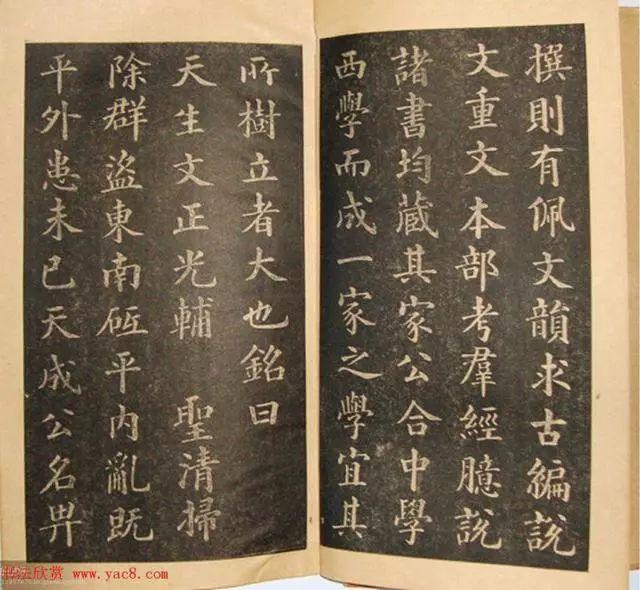 撰則有佩文韻求古編說
文重文本部考羣經臆說
諸書均藏其家公合中學
西學而成一家之學宜其
所樹立者大也銘曰
天生文正光輔 聖清掃
除群盜東南砥平內亂既
平外患未已天成公名畀
书法欣赏 www.yac8.com